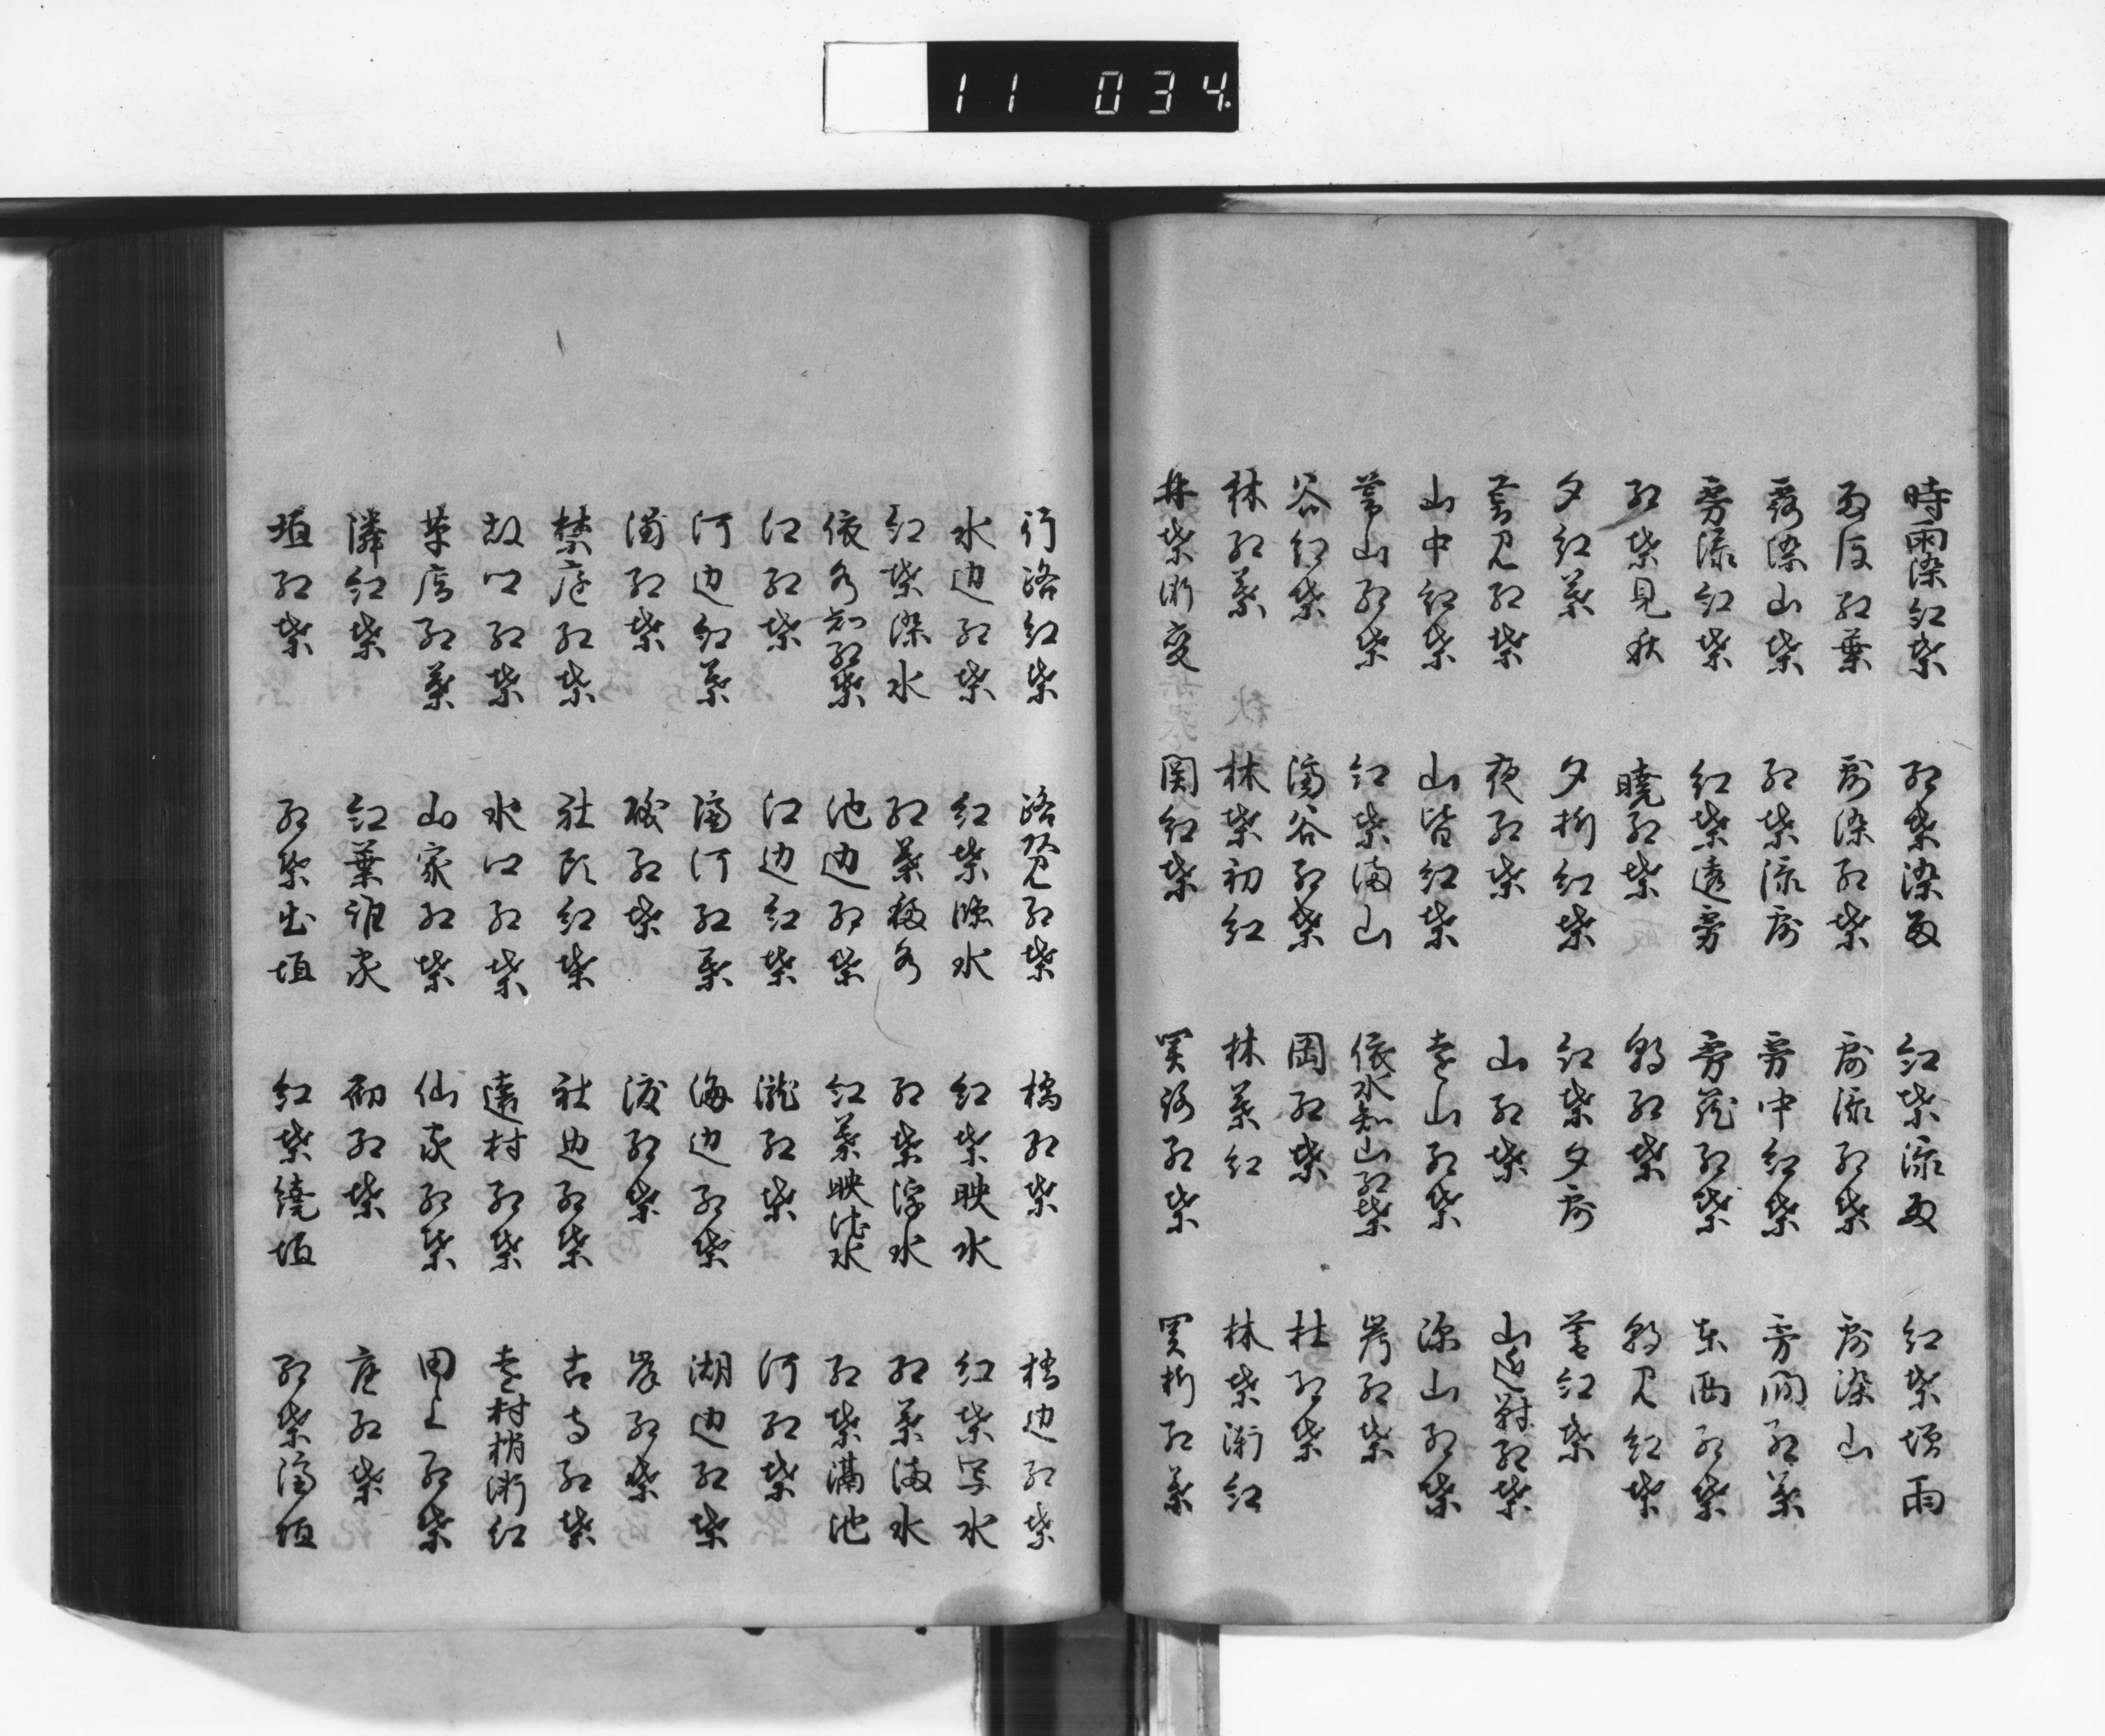 11 034.
時雨染紅葉 紅葉染雨 紅葉添雨 紅葉増雨
雨後紅葉 露染紅葉 露添紅葉 露染山
霧染山葉 紅葉添露 霧中紅葉 霧間紅葉
霧深紅葉 紅葉透霧 霧籠紅葉 東西紅葉
紅葉見秋 暁紅葉 朝紅葉 朝見紅葉
夕紅葉 夕折紅葉 紅葉夕露 暮紅葉
暮見紅葉 夜紅葉 山紅葉 山近対紅葉
山中紅葉 山皆紅葉 遠山紅葉 深山紅葉
暮山紅葉 紅葉満山 依水知山紅葉 岑紅葉
谷紅葉 隔谷紅葉 岡紅葉 杜紅葉
林紅葉 林葉初紅 林葉紅 林葉漸紅
林葉漸変 関紅葉 関路紅葉 関折紅葉
行路紅葉 路頭見紅葉 橋紅葉 橋辺紅葉
水辺紅葉 紅葉臨水 紅葉映水 紅葉写水
紅葉染水 紅葉移水 紅葉浮水 紅葉満水
依水知紅葉 池辺紅葉 紅葉映池水 紅葉満池
江紅葉 江辺紅葉 滝紅葉 河紅葉
河辺紅葉 隔河紅葉 海辺紅葉 湖辺紅葉
浦紅葉 磯紅葉 渡紅葉 岸紅葉
禁庭紅葉 社頭紅葉 社辺紅葉 古寺紅葉
故郷紅葉 水郷紅葉 遠村紅葉 遠村梢漸紅
草庵紅葉 山家紅葉 仙家紅葉 田上紅葉
隣紅葉 紅葉誰家 砌紅葉 庭紅葉
垣紅葉 紅葉出垣 紅葉繞垣 紅葉隔垣